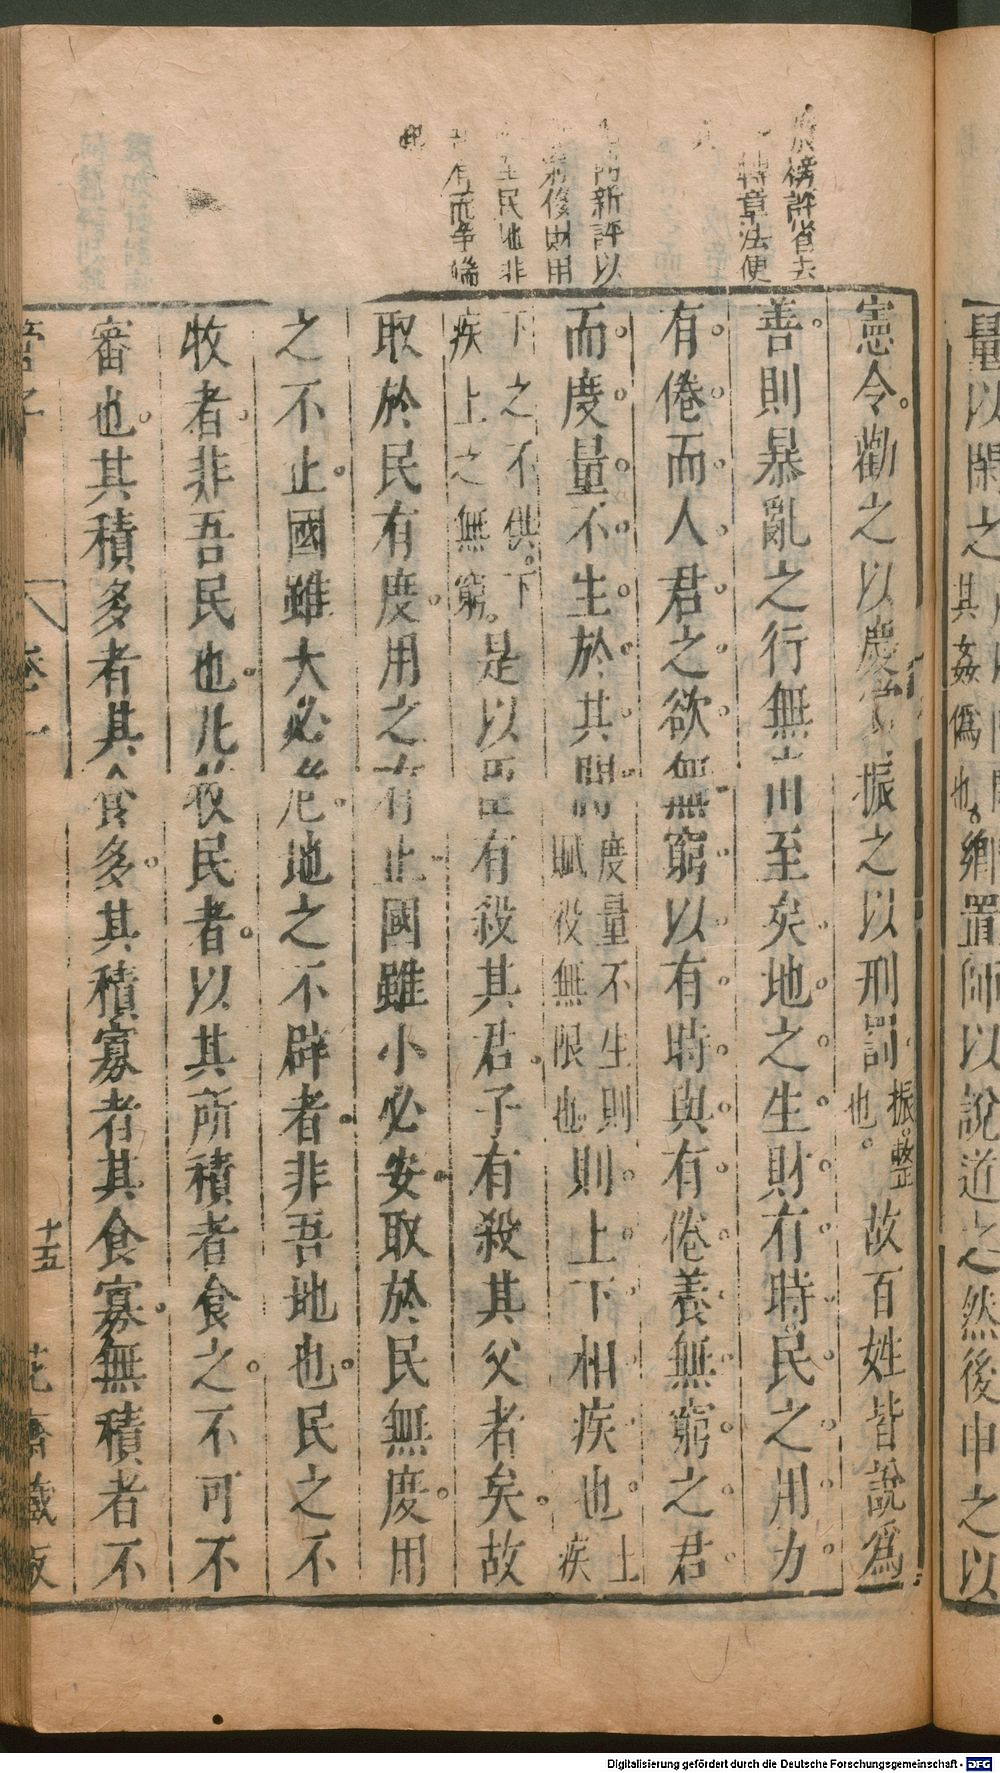 量以閑之
其姦
偽
也
鄉置師以說道之然後申之以
憲令勸之以慶
振之以刑罰
振整
也
故百姓皆說爲
善則暴亂之行無由至矣地之生財有時民之用力
有倦而人君之欲無窮以有時與有倦養無窮之君
而度量不生於其間
度量不生則
賦役無限也
則上下相疾也
上
疾
下之不供下
疾上之無窮
是以臣有殺其君子有殺其父者矣故
取於民有度用之有止國雖小必安取於民無度用
之不止國雖大必危地之不辟者非吾地也民之不
牧者非吾民也凡牧民者以其所積者食之不可不
審也其積多者其食多其積寡者其食寡無積者不
管子
卷一
十五
花齋藏板
榜評省去
轉章法便
新評以
財用
至民地非
有而爭端
起
Digitalisierung gefördert durch die Deutsche Forschungsgemeinschaft - DFG